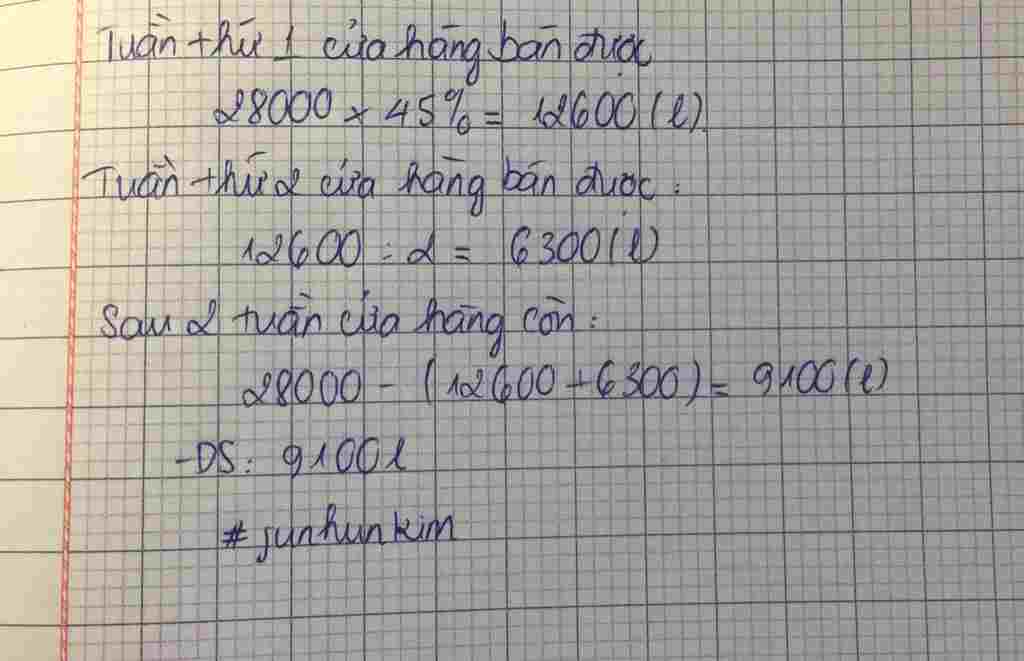 Tuần thứ 1 cửa hàng bán được
28000 x 45% = 12600 (l)
Tuần thứ 2 cửa hàng bán được:
12600 : 2 = 6300 (l)
Sau 2 tuần cửa hàng còn:
28000 - (12600 + 6300) = 9100 (l)
-DS: 9100l
# junhunkim